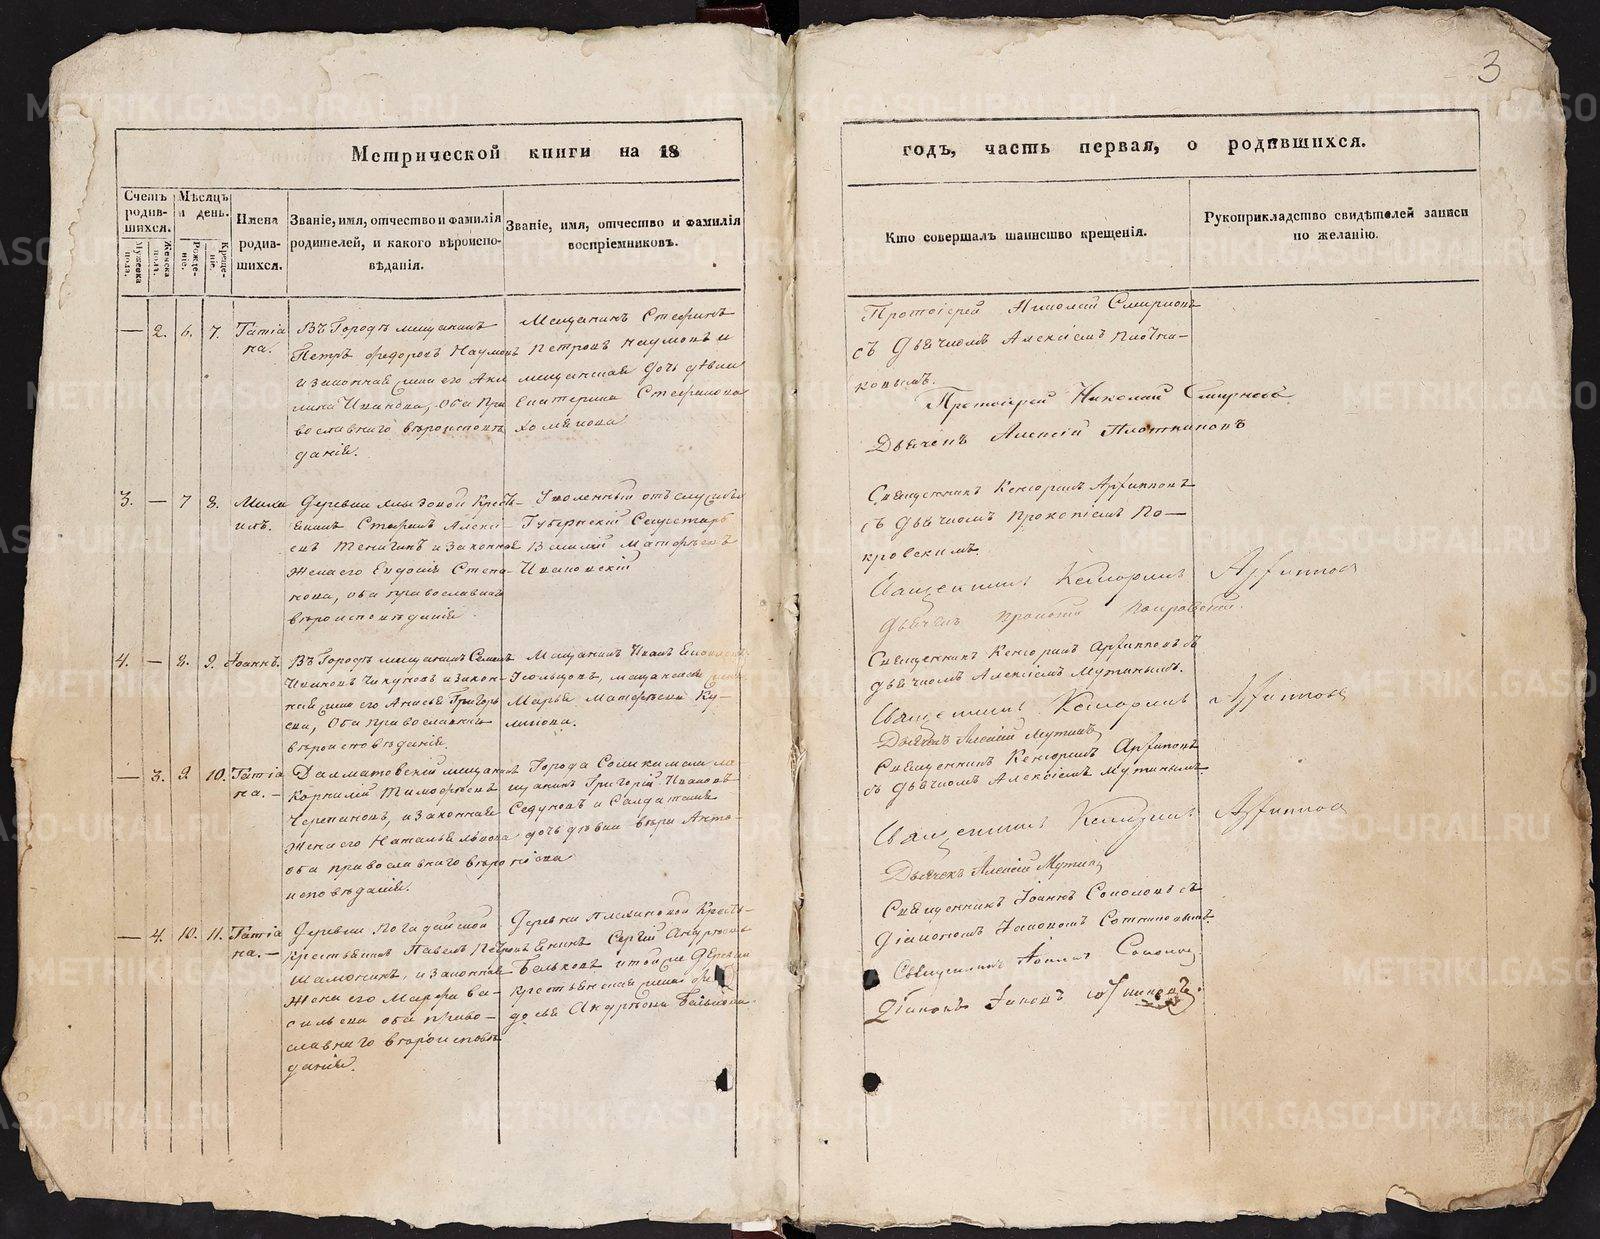 3
Метрической книги на 18
годъ, часть первая, о родившихся.
Счетъ родив-шихся.
Мужеска пола.
Женска пола.
Мѣсяцъ и день.
Рожде-ніе.
Креще-ніе.
Имена родив-шихся.
Званіе, имя, отчество и фамилія
родителей, и какого вѣроиспо-
вѣданія.
Званіе, имя, отчество и фамилія
воспріемниковъ.
Кто совершалъ таинство крещенія.
Рукоприкладство свидѣтелей записи
по желанію.
— 2. 6. 7.
Татіа
на.
Въ Городѣ мещанинъ
Петръ Федоровъ Наумовъ
и законная жена его Аки
лина Иванова, Оба пра
вославнаго вѣроисповѣ
данія.
Мещанинъ Стефанъ
Петровъ Наумовъ и
мещанская дочь дѣвка
Екатерина Стефанова
Протоіерей Николай Смирновъ
съ Дьячкомъ Алексіемъ Плотни-
ковымъ.
Протоіерей Николай Смирновъ
Дьячекъ Алексій Плотниковъ
3. — 7 8.
Миха
илъ.
Деревни Кресть-
янинъ Стефанъ Алексі-
евъ и Законная
жена его Евдокія Степа-
нова, оба православнаго
вѣроисповѣданія
Уволенный отъ службы
Губернскій Секретарь
Василій Матѳѣевъ
Ивановскій
Священникъ Кенсоринъ Арѳиновъ
съ Дьячкомъ Прокопіемъ По-
кровскимъ.
Священникъ Кенсоринъ Арѳиновъ
Дьячекъ Прокопій Покровскій.
4. — 8. 9.
Іоаннъ.
Въ Городѣ мещанинъ Семенъ
Ивановъ Чикуновъ и закон-
ная жена его Анисья Григорь
ева, Оба православнаго
вѣроисповѣданія.
Мещанинъ Иванъ
Усольцовъ, мещанская жена
Марья Матѳѣева Ку-
ликова.
Священникъ Кенсоринъ Арѳиновъ съ
дьячкомъ Алексіемъ Мутинымъ.
Священникъ Кенсоринъ Арѳиновъ
Дьячекъ Алексій Мутинъ
— 3. 9. 10.
Татіа
на. —
Далматовскій мещанинъ
Корнилій Тимоѳѣевъ
Черепановъ, и Законная
жена его Наталья Львова
оба православнаго вѣро
исповѣданія.
Города Соликамска ме
щанинъ Григорій Ивановъ
Седуновъ и Солдатская
дочь дѣвка Вѣра Анто-
нова
Священникъ Кенсоринъ Арѳиновъ
съ дьячкомъ Алексіемъ Мутинымъ.
Священникъ Кенсоринъ Арѳиновъ
Дьячекъ Алексій Мутинъ
— 4. 10. 11.
Татіа
на. —
Деревни Погадайской
крестьянинъ Павелъ Петровъ
и законная
жена его Марѳа Ва-
сильева оба право-
славнаго вѣроисповѣ
данія.
Деревни Плехановой Кресть-
янинъ Сергій Андреевъ
Бельковъ и той же Деревни
крестьянская жена Ѳео
досья Андреева Белькова.
Священникъ Іоаннъ Соколовъ съ
Діакономъ Іаковомъ Сотниковымъ.
Священникъ Іоаннъ Соколовъ
Діаконъ Іаковъ Сотниковъ.